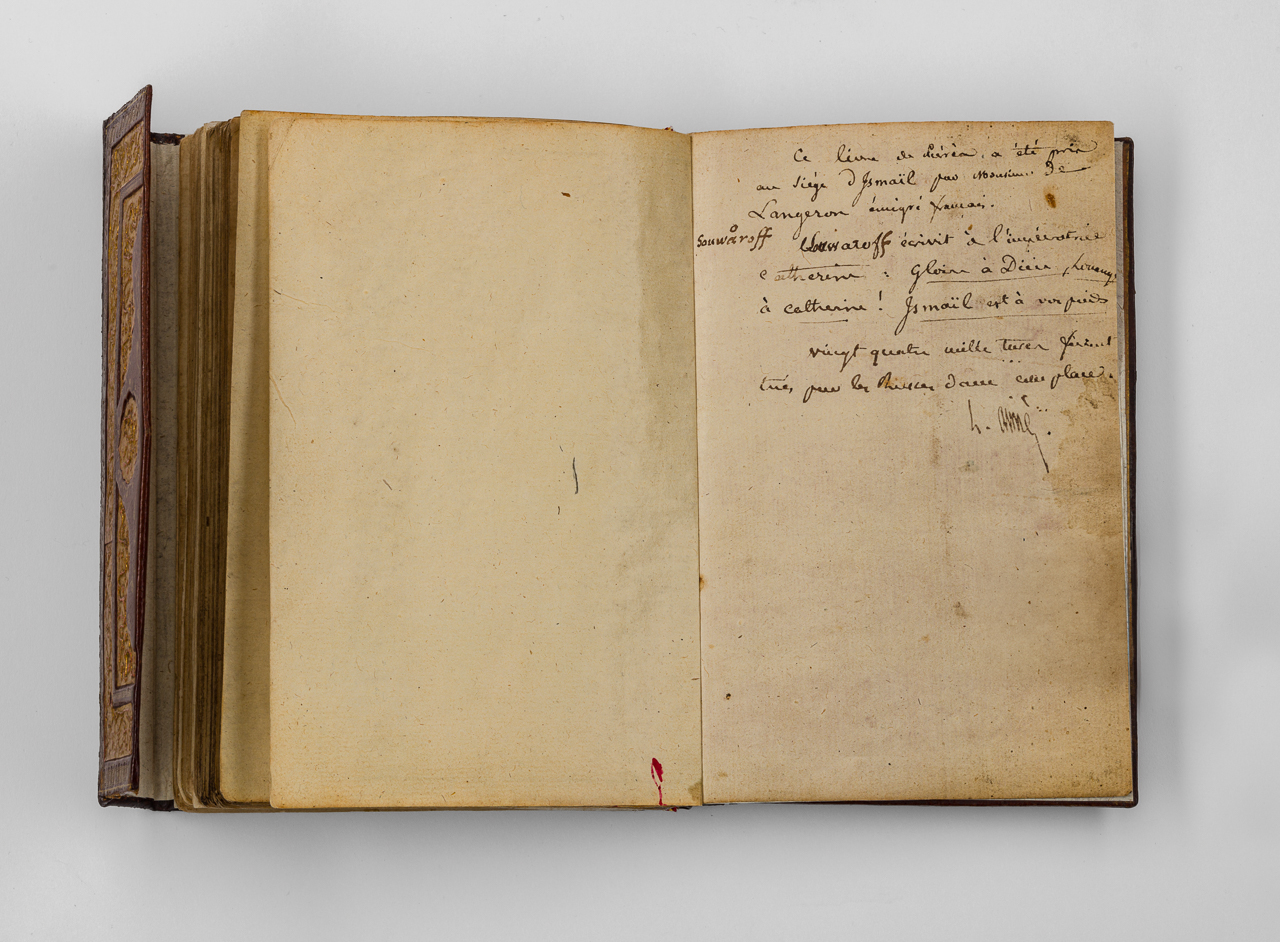 Ce livre de prières, a été pris
au siége d'Ismaïl par Monsieur De
Langeron émigré français.
Souwaroff
Souwaroff écrivit à l'impératrice
Catherine : Gloire à Dieu, Louange
à catherine ! Ismaïl est à vos pieds
vingt quatre mille turcs furent
tués par les Russes dans cette place.